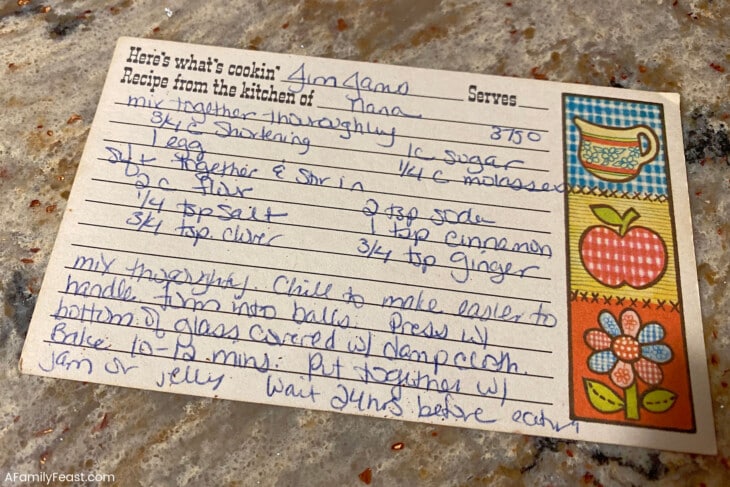 Here's what's cookin' Jim Jams Serves
Recipe from the kitchen of Nana
mix together thoroughly 375°
3/4 c shortening 1 c sugar
1 egg 1/4 c molasses
Sift together & stir in
2 c flour 2 tsp soda
1/4 tsp salt 1 tsp cinnamon
3/4 tsp. clover 3/4 tsp ginger
mix thoroughly. Chill to make easier to
handle form into balls. Press w/
bottom of glass covered w/ damp cloth.
Bake 10-12 mins. Put together w/
jam or jelly Wait 24 hrs before eating
AFamilyFeast.com